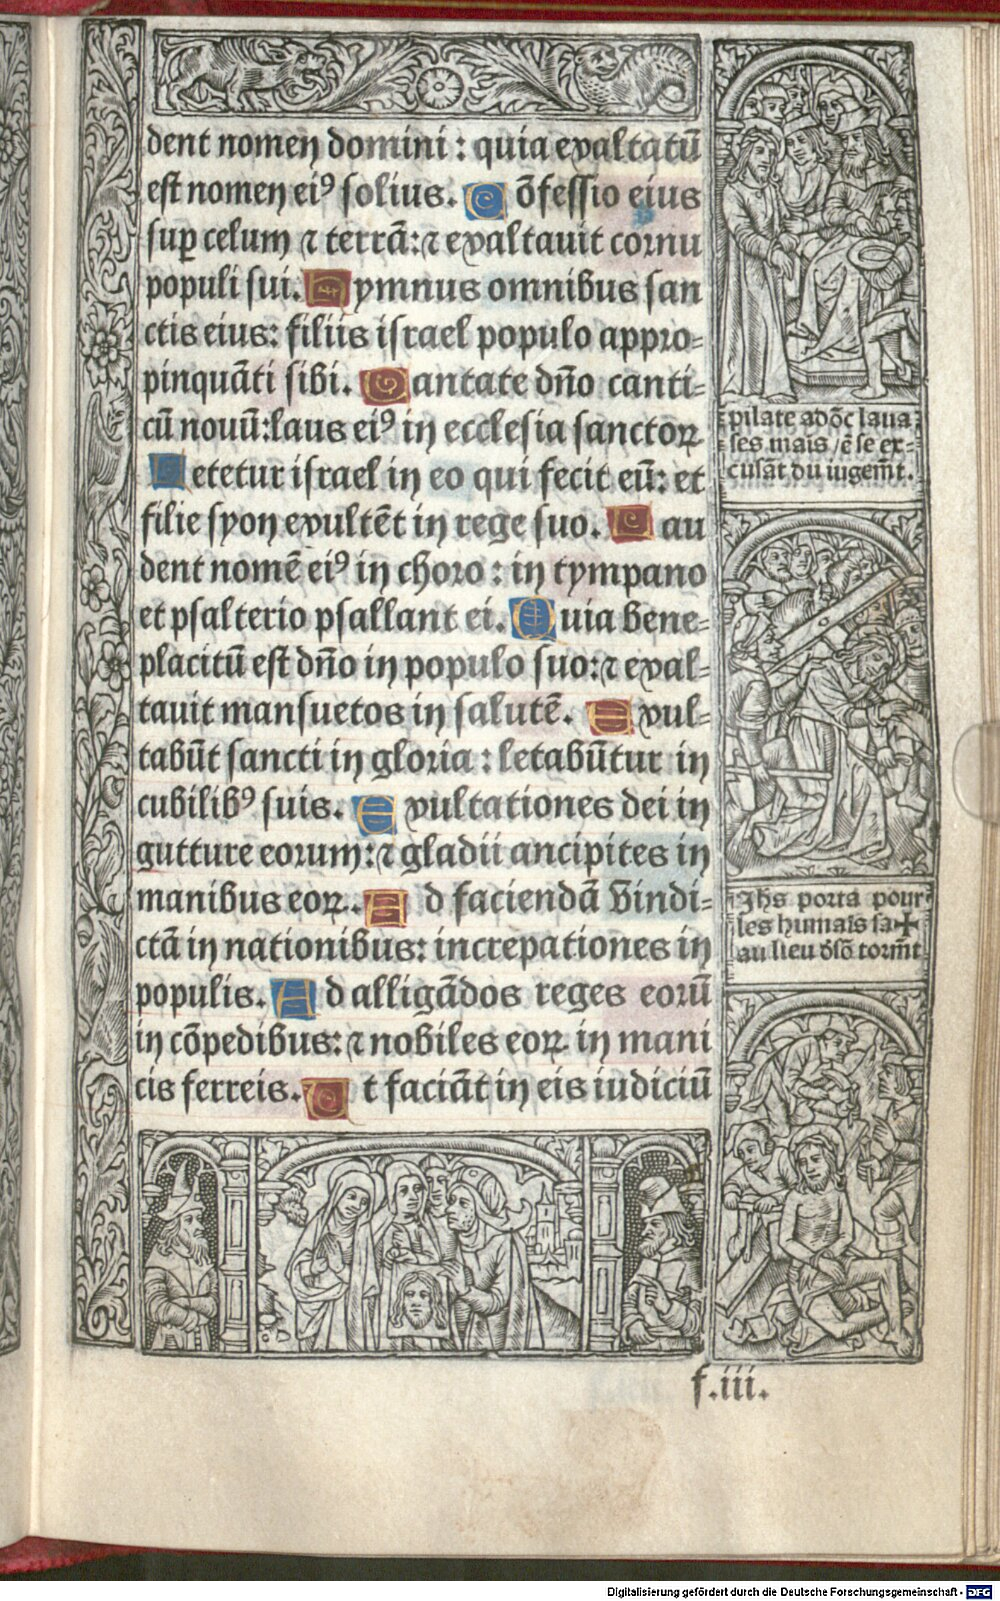 dent nomen domini : quia exaltatū
est nomen eiꝰ solius. C ōfessio eius
suꝑ celum ⁊ terrā: ⁊ exaltauit cornu
populi sui. H ymnus omnibus san
ctis eius: filiis israel populo appro-
pinquāti sibi. C antate dño canti-
cū nouū: laus eiꝰ in ecclesia sanctoꝝ
L etetur israel in eo qui fecit eū: et
filie syon exultēt in rege suo. L au
dent nomē eiꝰ in choro : in tympano
et psalterio psallant ei. Q uia bene-
placitū est dño in populo suo: ⁊ exal-
tauit mansuetos in salutē. E xul-
tabūt sancti in gloria : letabūtur in
cubilibꝰ suis. E xultationes dei in
gutture eorum: ⁊ gladii ancipites in
manibus eoꝝ. A d faciendā vindi-
ctā in nationibus: increpationes in
populis. A d alligādos reges eorū
in cōpedibus: ⁊ nobiles eoꝝ in mani
cis ferreis. V t faciāt in eis iudiciū
pilate adōc laua
ses mais / ē se ex-
cusāt du iugem̄t.
Jhs porta pour
les humais sa ✝
au lieu d'lō torm̄t
f.iii.
Digitalisierung gefördert durch die Deutsche Forschungsgemeinschaft - DFG